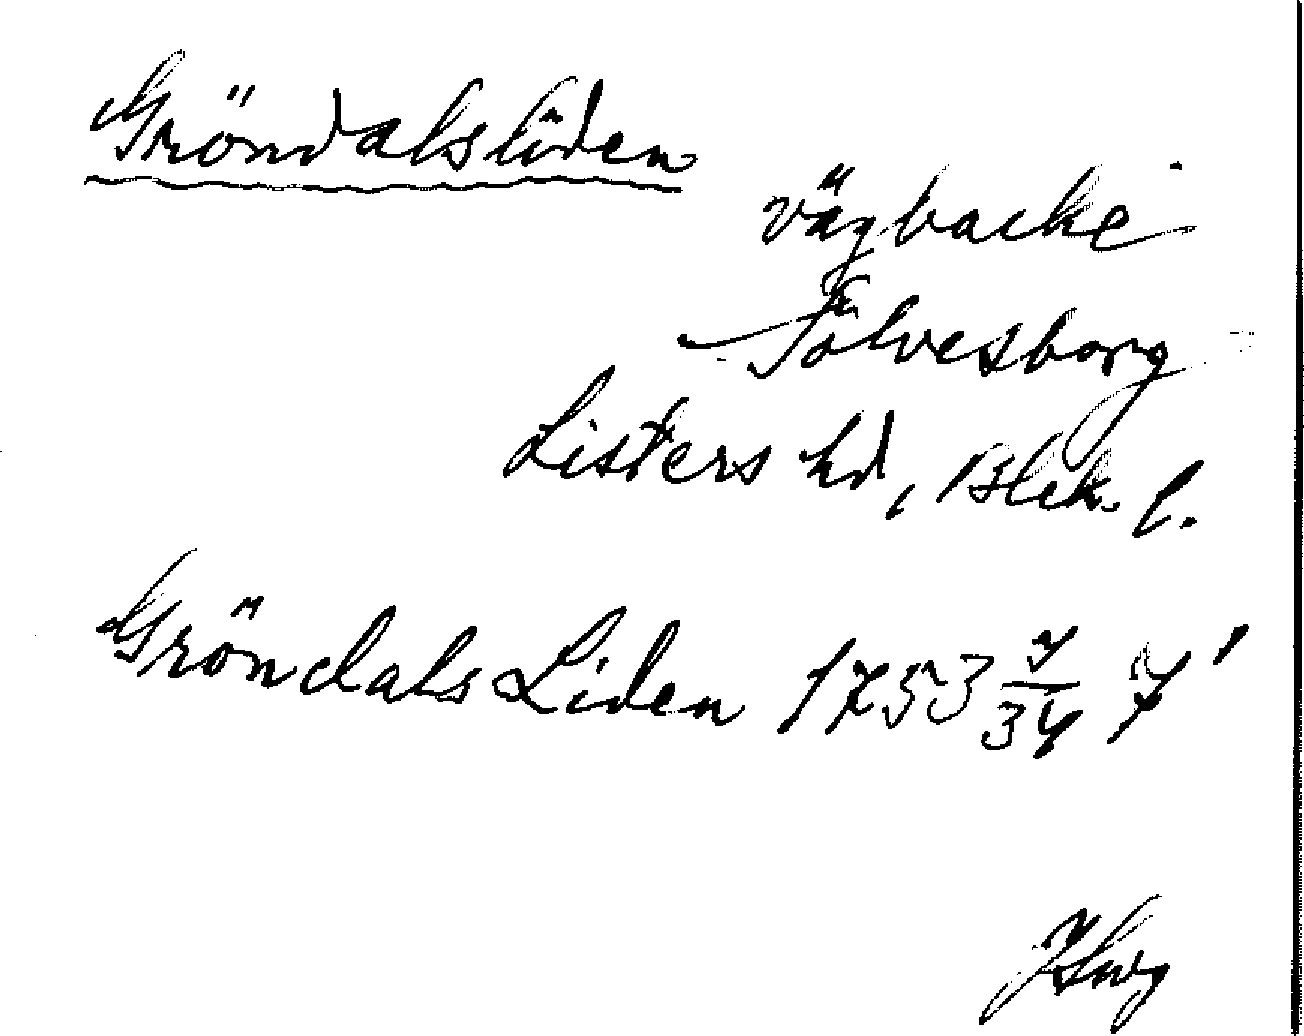 Gröndalsliden
vägbacke
Sölvesborg
Listers hd, Blek. l.
Gröndals Liden 1753 7/34 7'